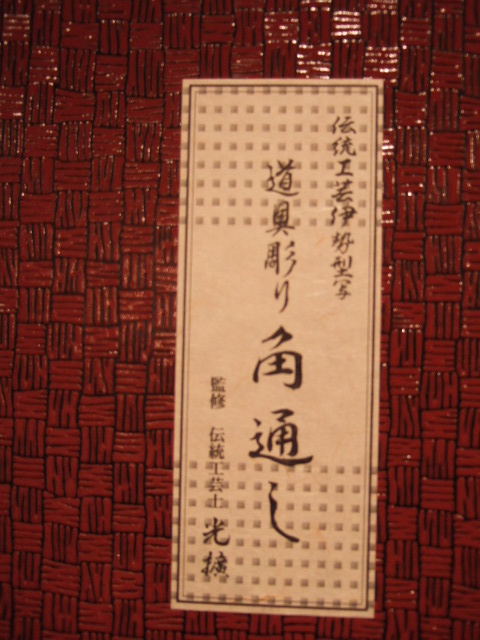 伝統工芸伊勢型写
道具彫り 角通し
監修 伝統工芸士 光擴